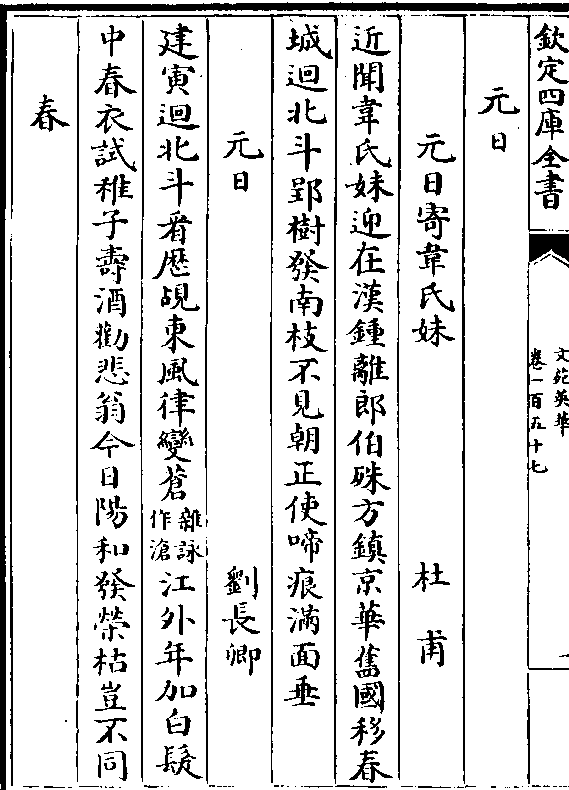 欽定四庫全書
文苑英華
卷一百五十七
元日
元日寄韋氏妹 杜甫
近聞韋氏妹迎在漢鍾離郎伯殊方鎮京華舊國移春
城迴北斗郢樹發南枝不見朝正使啼痕滿面垂
元日 劉長卿
建寅迴北斗看歴覘東風律變蒼雜詠作滄江外年加白髮
中春衣試稚子壽酒勸悲翁今日陽和發榮枯豈不同
春